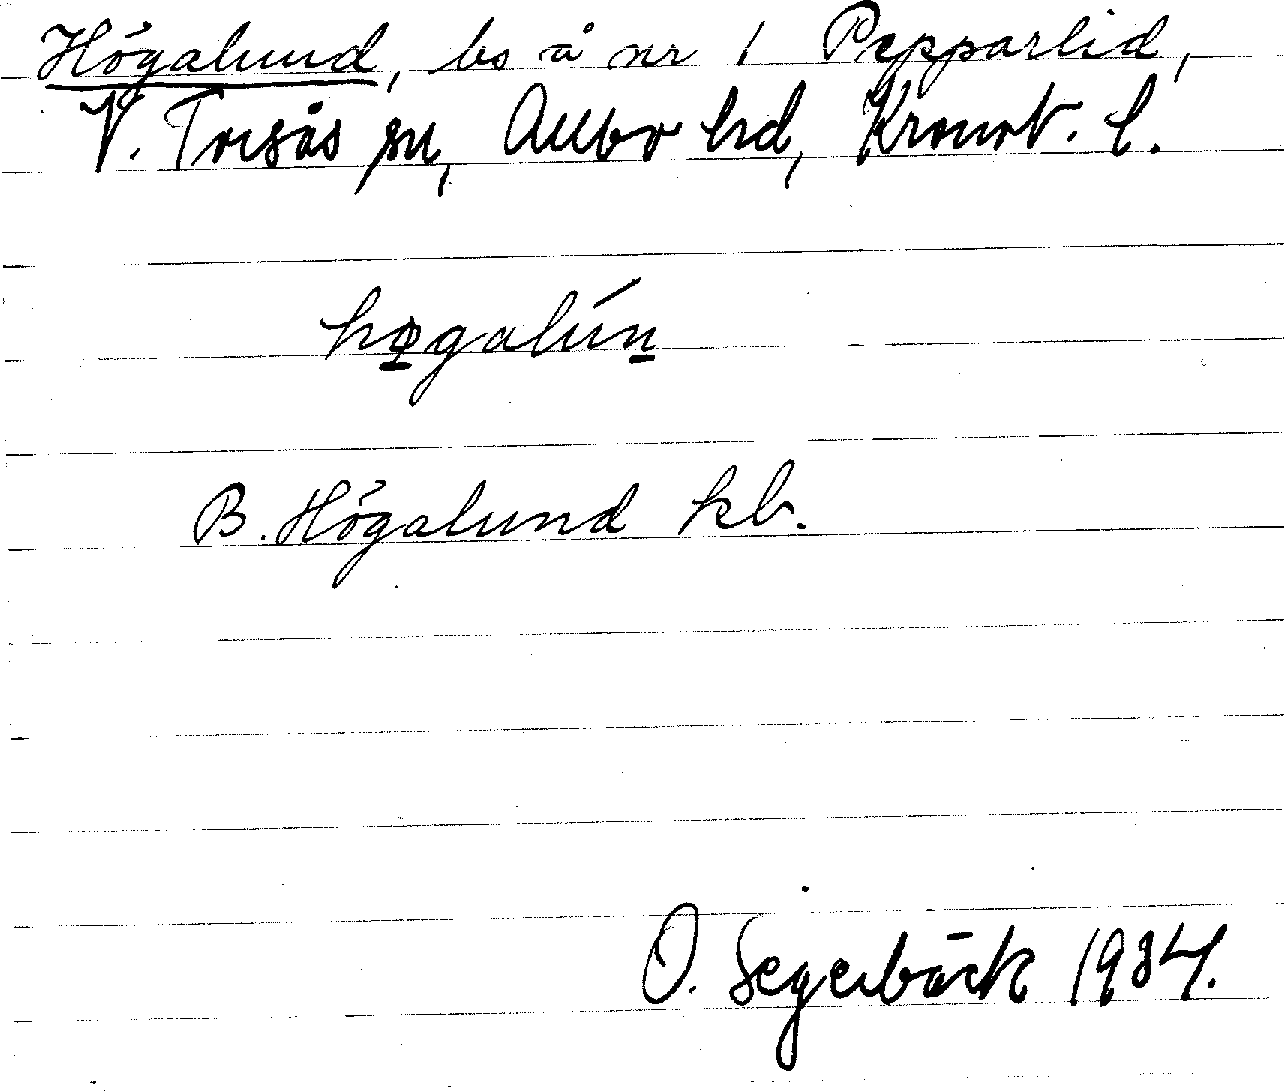 Högalund, bs å nr 1 Pepparlid,
V. Torsås sn, Allbo hd, Kronob. l.
hø̱galún̠
B. Högalund kb.
O. Segerbäck 1934.